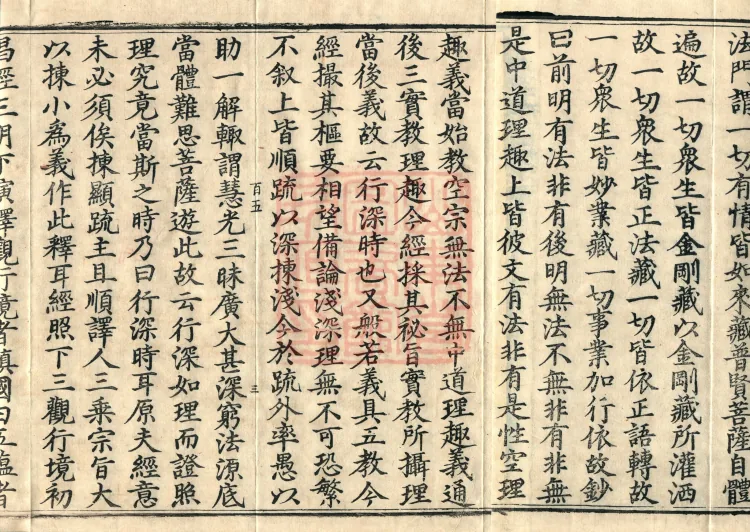 法門謂一切有情皆如來藏普賢菩薩自體
遍故一切衆生皆金剛藏以金剛藏所灌洒
故一切衆生皆正法藏一切皆依正語轉故
一切衆生皆妙業藏一切事業加行依故鈔
曰前明有法非有後明無法不無非有非無
是中道理趣上皆彼文有法非有是性空理
趣義當始教空宗無法不無中道理趣義通
後三實教理趣今經採其祕旨實教所攝理
當後義故云行深時也又般若義具五教今
經撮其樞要相望備論淺深理無不可恐繁
不叙上皆順䟽以深揀淺今於䟽外率愚以
百五 三
助一解輒謂慧光三昧廣大甚深窮法源底
當體難思菩薩遊此故云行深如理而證照
理究竟當斯之時乃曰行深時耳原夫經意
未必須俟揀顯䟽主且順譯人三乘宗旨大
以揀小爲義作此釋耳經照下三觀行境初
經三明下演繹觀行境者鎮國曰五藴者